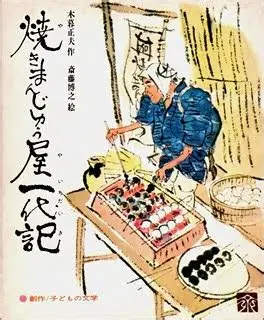 木暮正夫作
斎藤博之絵
焼きまんじゅう屋一代記
や
や
いちだいき
創作/子どもの文学